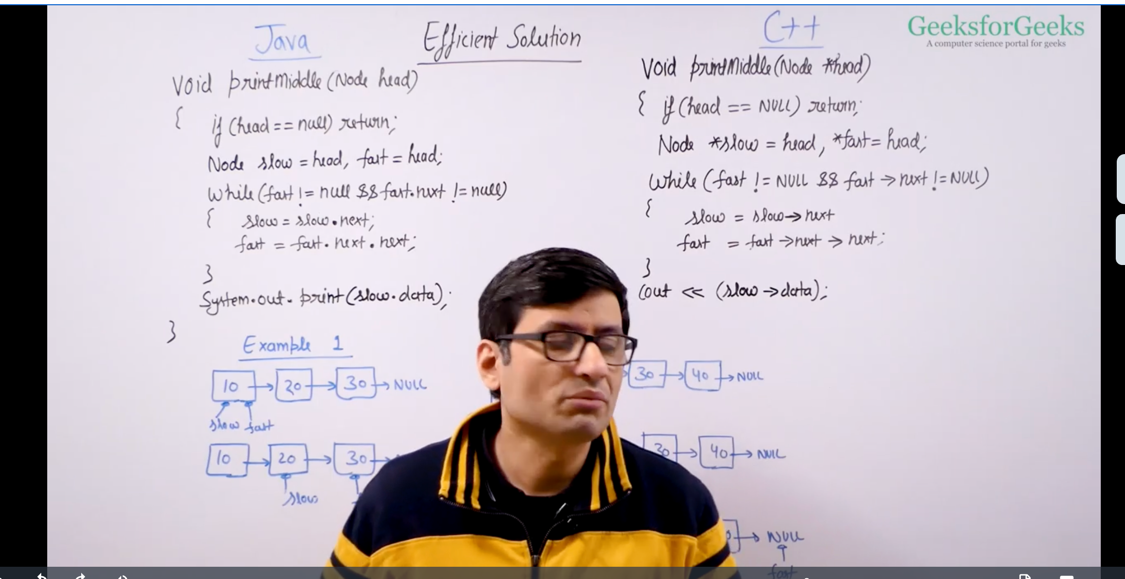 Java
Efficient Solution
C++
GeeksforGeeks
A computer science portal for geeks
Void printMiddle (Node head)
{
if (head == null) return;
Node slow = head, fast = head;
While (fast != null && fast.next != null)
{ slow = slow.next;
fast = fast.next.next;
}
System.out.print(slow.data);
}
Void printMiddle(Node *head)
{ if (head == NULL) return;
Node *slow = head, *fast = head;
While (fast != NULL && fast → next != NULL)
{
slow = slow → next
fast = fast → next → next;
}
Cout << (slow → data);
Example 1
10 → 20 → 30 → NULL
slow fast
10 → 20 → 30
slow
30 → 40 → NULL
30 → 40 → NULL
→ NULL
fast